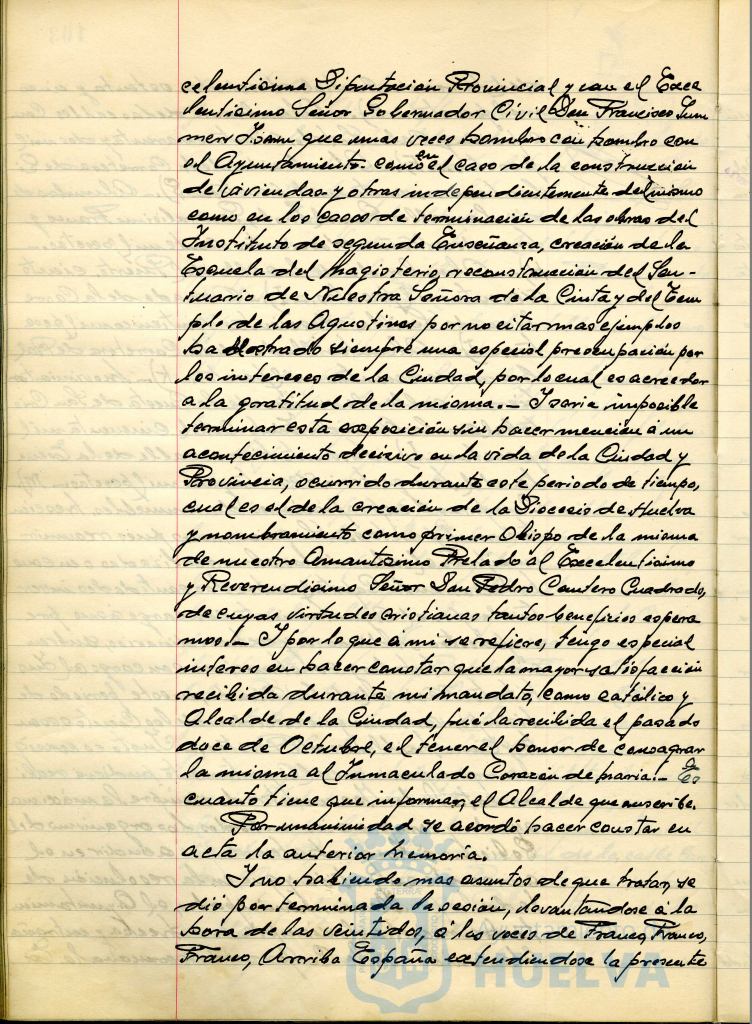 celentisima Diputación Provincial y con el Exce
lentisimo Señor Gobernador Civil Don Francisco Sum
mers Isern que unas veces hombro con hombro con
el Ayuntamiento como en el caso de la construccion
de viviendas y otras independientemente del mismo
como en los casos de terminación de las obras del
Instituto de segunda Enseñanza, creación de la
Escuela del Magisterio, reconstrucción del San-
tuario de Nuestra Señora de la Cinta y del Tem
plo de las Agustinas por no citar mas ejemplos
ha mostrado siempre una especial preocupación por
los intereses de la Ciudad, por lo cual es acreedor
a la gratitud de la misma.- I seria imposible
terminar esta exposición sin hacer mención á un
acontecimiento decisivo en la vida de la Ciudad y
Provincia, ocurrido durante este periodo de tiempo,
cual es el de la creación de la Diocesis de Huelva
y nombramiento como primer Obispo de la misma
de nuestro Amantisimo Prelado al Excelentisimo
y Reverendisimo Señor Don Pedro Cantero Cuadrado,
de cuyas virtudes cristianas tantos beneficios espera
mos.- I por lo que á mi se refiere, tengo especial
interes en hacer constar que la mayor satisfacción
recibida durante mi mandato, como católico y
Alcalde de la Ciudad, fué la recibida el pasado
doce de Octubre, el tener el honor de consagrar
la misma al Inmaculado Corazón de maria.- Es
cuanto tiene que informar, el Alcalde que suscribe.
Por unanimidad se acordó hacer constar en
acta la anterior Memoria.
I no habiendo mas asuntos de que tratar, se
dió por terminada la sesión, levantandose á la
hora de las veintidos, á las voces de Franco, Franco,
Franco, Arriba España extendiendose la presente
HUELVA